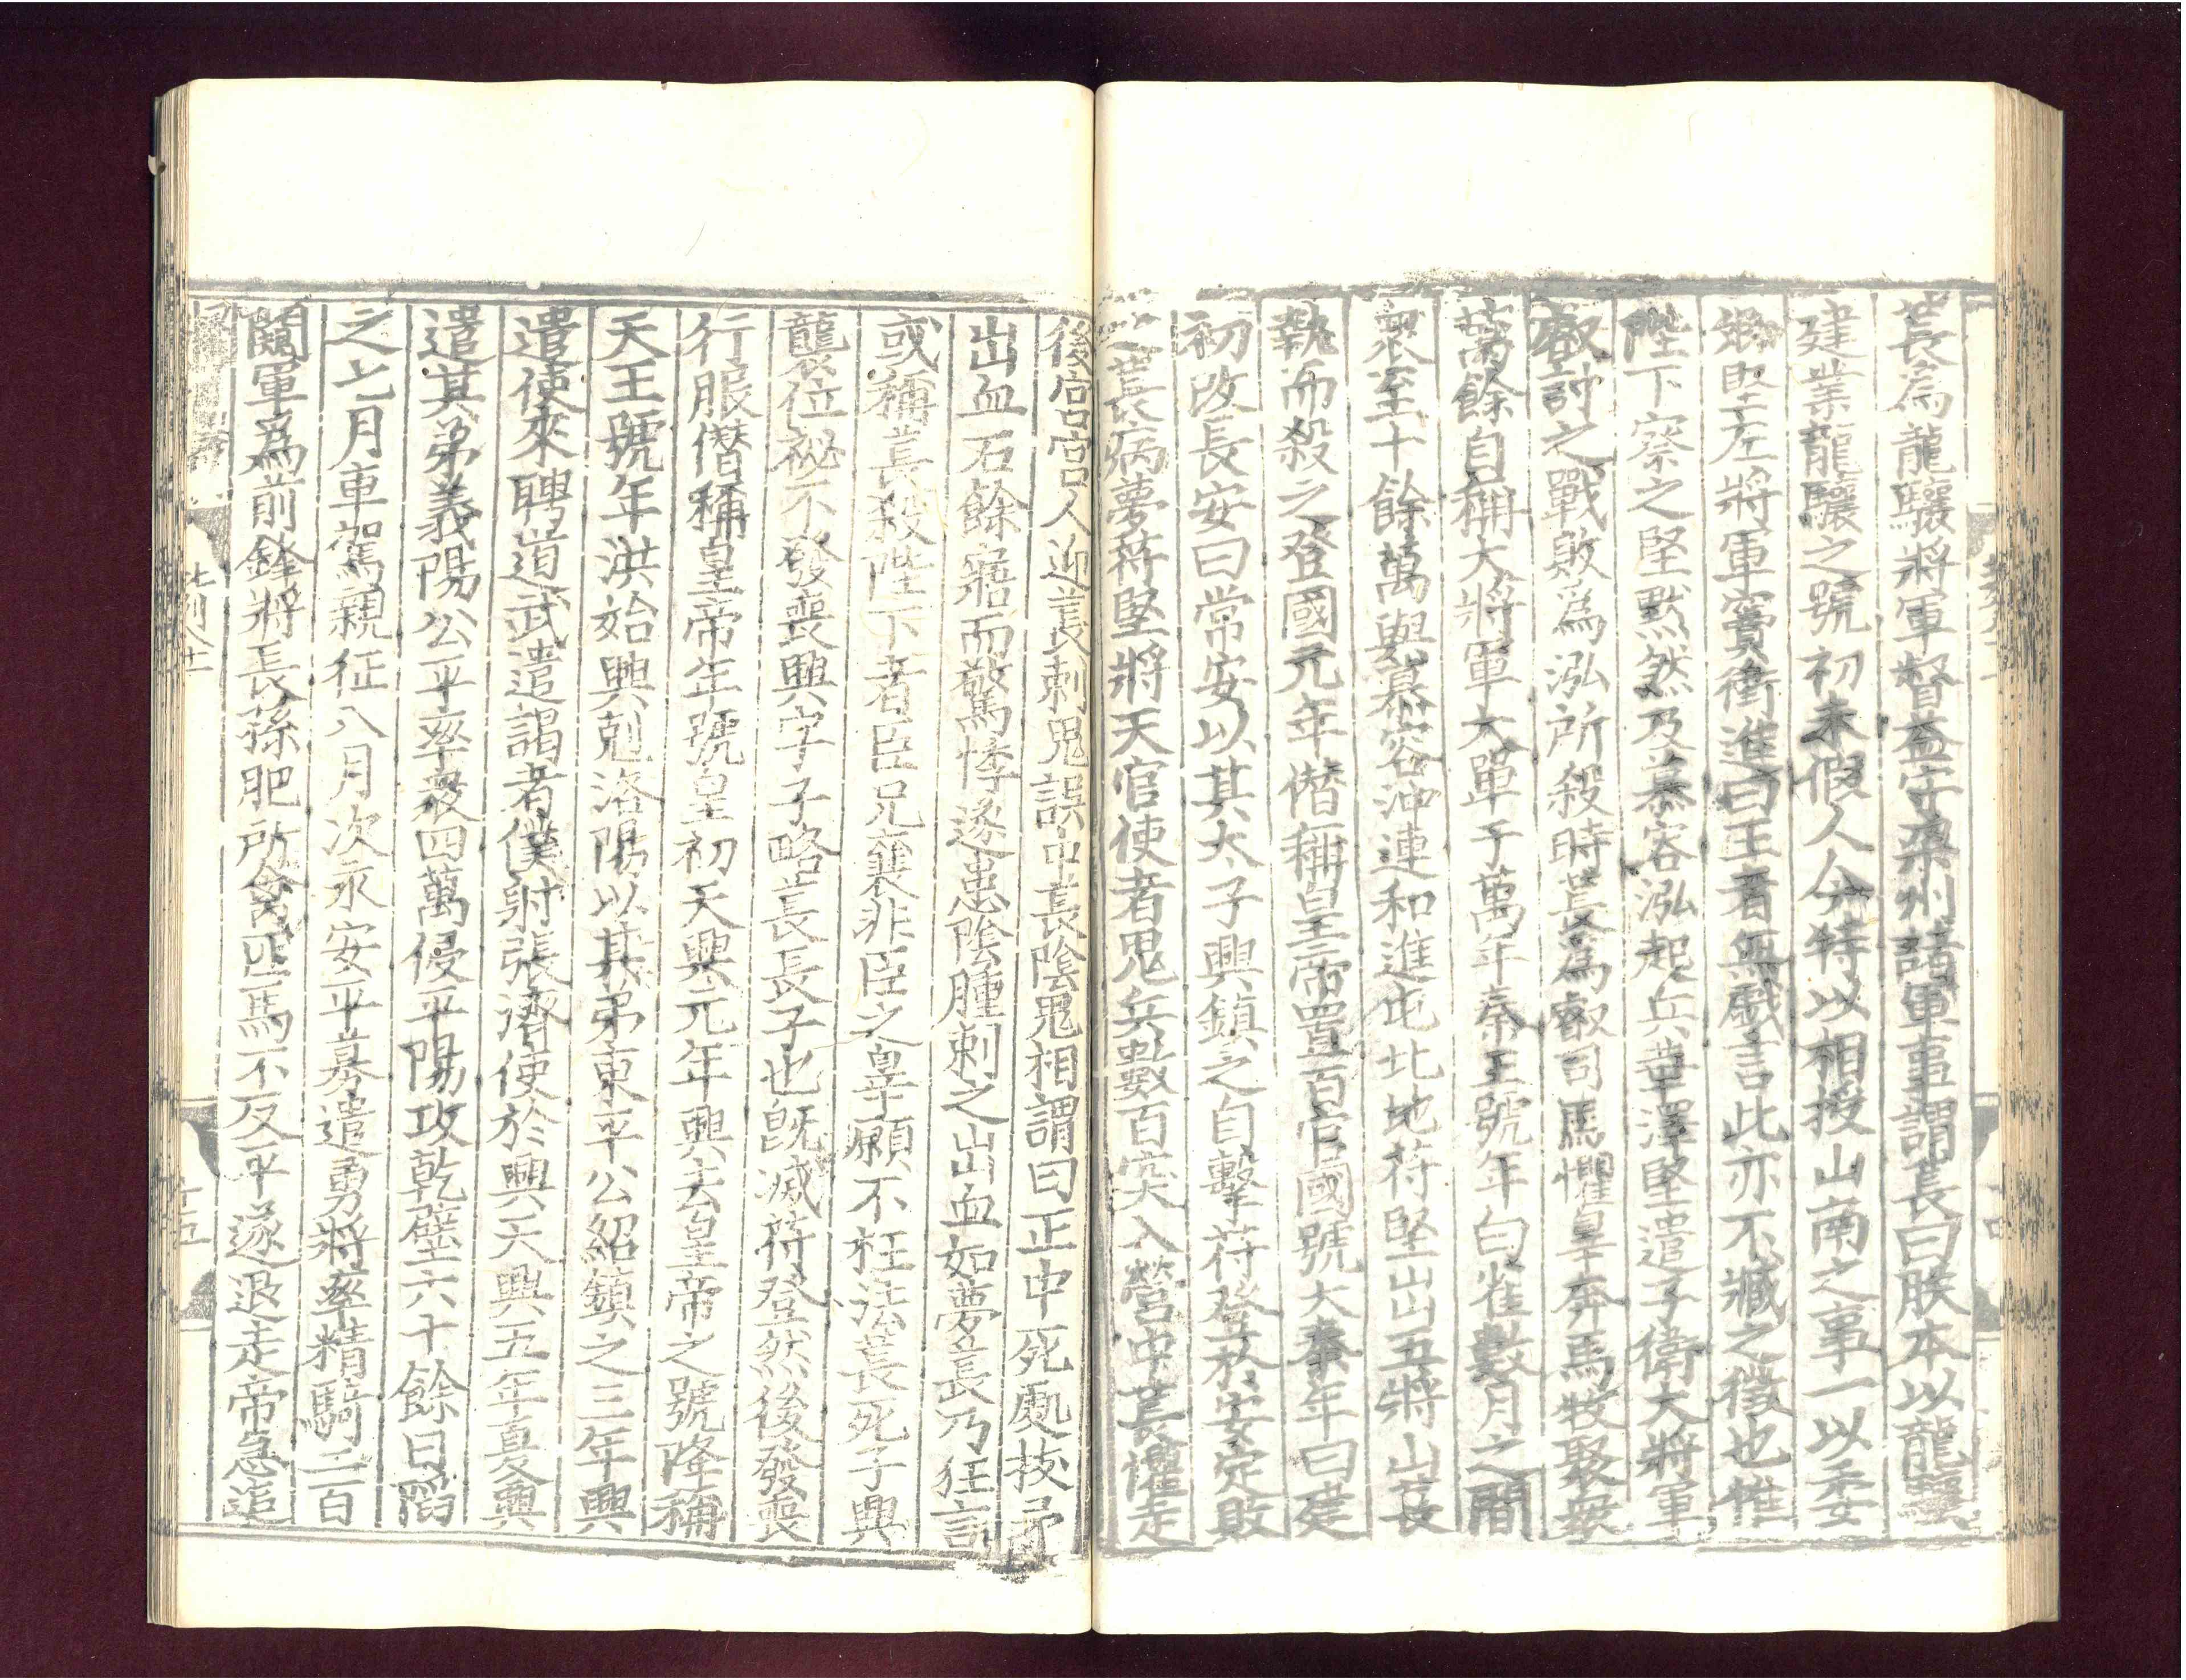 萇爲龍驤將軍督益守梁州諸軍事謂萇曰朕本以龍驤
建業龍驤之號初未假人今特以相授山南之事一以委
卿堅左將軍竇衝進曰王者無戲言此亦不臧之徵也惟
陛下察之堅默然及慕容泓起兵華澤堅遣子衛大將軍
叡討之戰敗爲泓所殺時萇爲叡司馬懼辠奔馬牧聚衆
萬餘自稱大將軍大單于萬年秦王號年白雀數月之間
衆至十餘萬與慕容沖連和進屯北地苻堅出五將山萇
執而殺之登國元年僭稱皇帝置百官國號大秦年曰建
初改長安曰常安以其太子興鎮之自擊苻登於安定敗
之萇病夢苻堅將天官使者鬼兵數百突入營中萇懼走
後宮宮人迎萇刺鬼誤中萇陰鬼相謂曰正中死處拔矛
出血石餘寤而驚悸遂患陰腫刺之出血如夢萇乃狂言
或稱萇殺陛下者臣兄襄非臣之辠願不枉法萇死子興
襲位祕不發喪興字子略萇長子也既滅苻登然後發喪
行服僭稱皇帝年號皇初天興元年興去皇帝之號降稱
天王號年洪始興剋洛陽以其弟東平公紹鎮之三年興
遣使來聘道武遣謁者僕射張濟使於興天興五年夏興
遣其弟義陽公平率衆四萬侵平陽攻乾壁六十餘日陷
之七月車駕親征八月次永安平募遣勇將率精騎二百
闚軍爲前鋒將長孫肥所禽匹馬不反平遂退走帝急追
北列八十一
十五